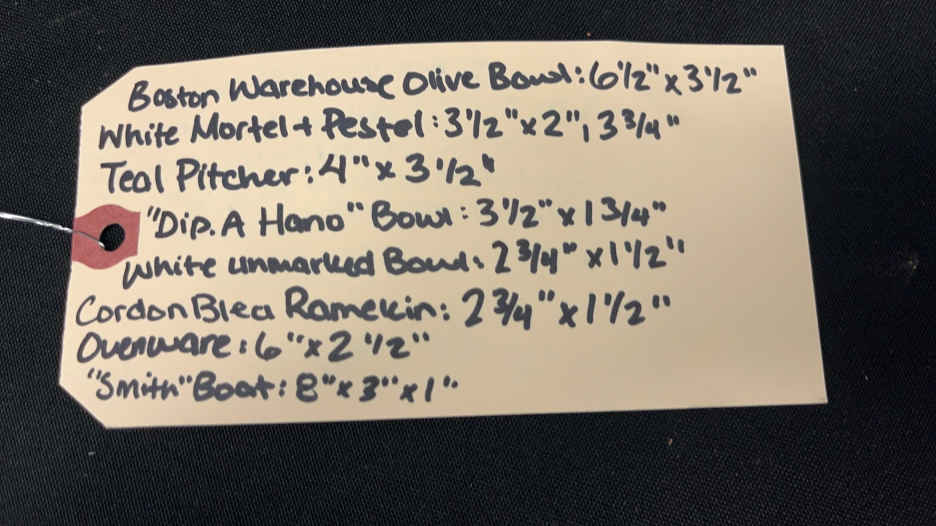 Boston Warehouse Olive Bowl: 6 1/2" x 3 1/2"
White Mortel + Pestel: 3 1/2" x 2", 3 3/4"
Teal Pitcher: 4" x 3 1/2"
"Dip. A Hano" Bowl: 3 1/2" x 1 3/4"
White unmarked Bowl: 2 3/4" x 1 1/2"
Cordon Blea Ramekin: 2 3/4" x 1 1/2"
Ovenware: 6" x 2 1/2"
"Smith" Boat: 8" x 3" x 1"